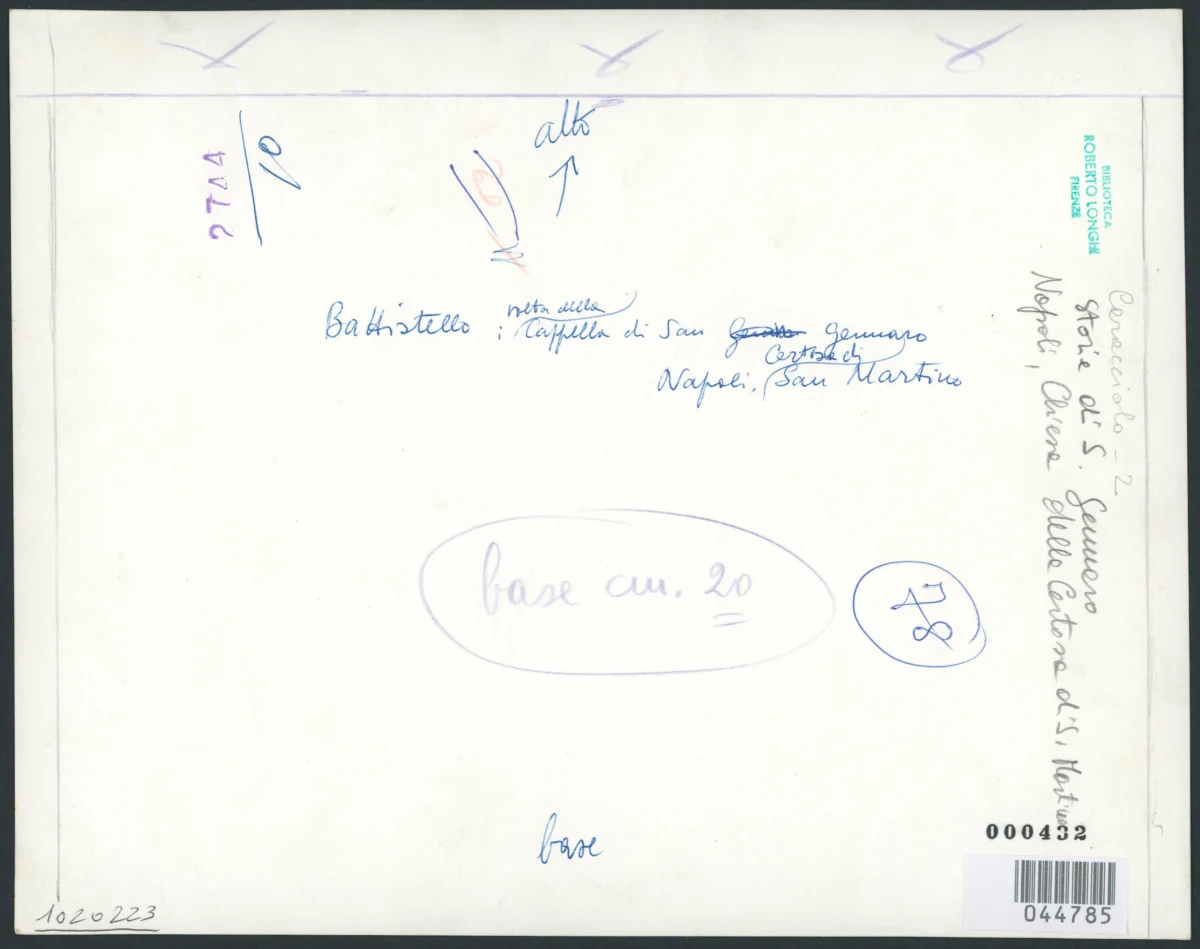 alto
10
Battistello ; volta della Cappella di San Gennaro
Napoli, Certosa di San Martino
base cm. 20
78
base
1020223
BIBLIOTECA
ROBERTO LONGHI
FIRENZE
Caracciolo - 2
Storie di S. Gennaro
Napoli, Chiesa della Certosa di S. Martino
000432
044785